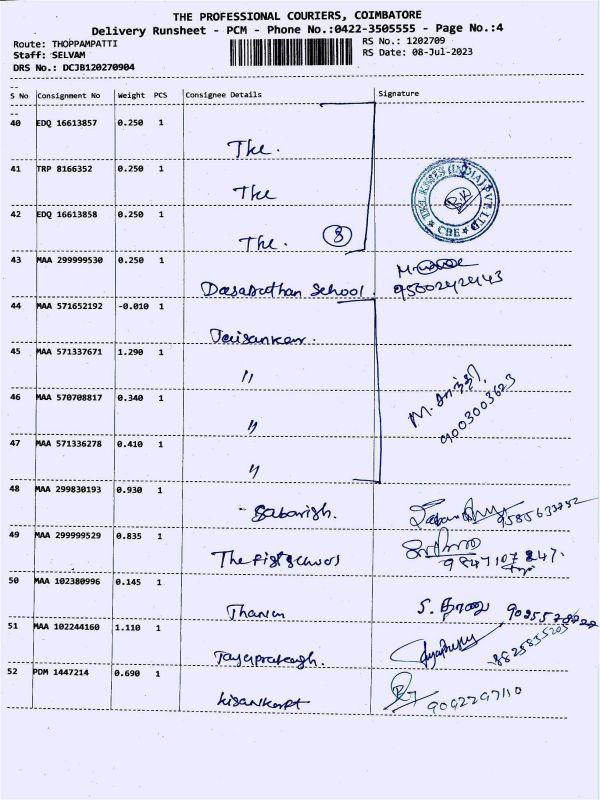 THE PROFESSIONAL COURIERS, COIMBATORE
Delivery Runsheet - PCM - Phone No.:0422-3505555 - Page No.:4
Route: THOPPAMPATTI RS No.: 1202709
Staff: SELVAM RS Date: 08-Jul-2023
DRS No.: DCJB120270904
S No Consignment No Weight PCS Consignee Details Signature
40 EDQ 16613857 0.250 1
The.
41 TRP 8166352 0.250 1
The
42 EDQ 16613858 0.250 1
The. 8
43 MAA 299999530 0.250 1
School
44 MAA 571652192 -0.010 1
Jaisankar.
45 MAA 571337671 1.290 1
"
46 MAA 570708817 0.340 1
"
M. சாந்தி,
9003003623
47 MAA 571336278 0.410 1
"
48 MAA 299830193 0.930 1
Sabarish.
49 MAA 299999529 0.835 1
The first school
50 MAA 102380996 0.145 1
51 MAA 102244160 1.110 1
Jayaprakash.
52 PDM 1447214 0.690 1
9042297110